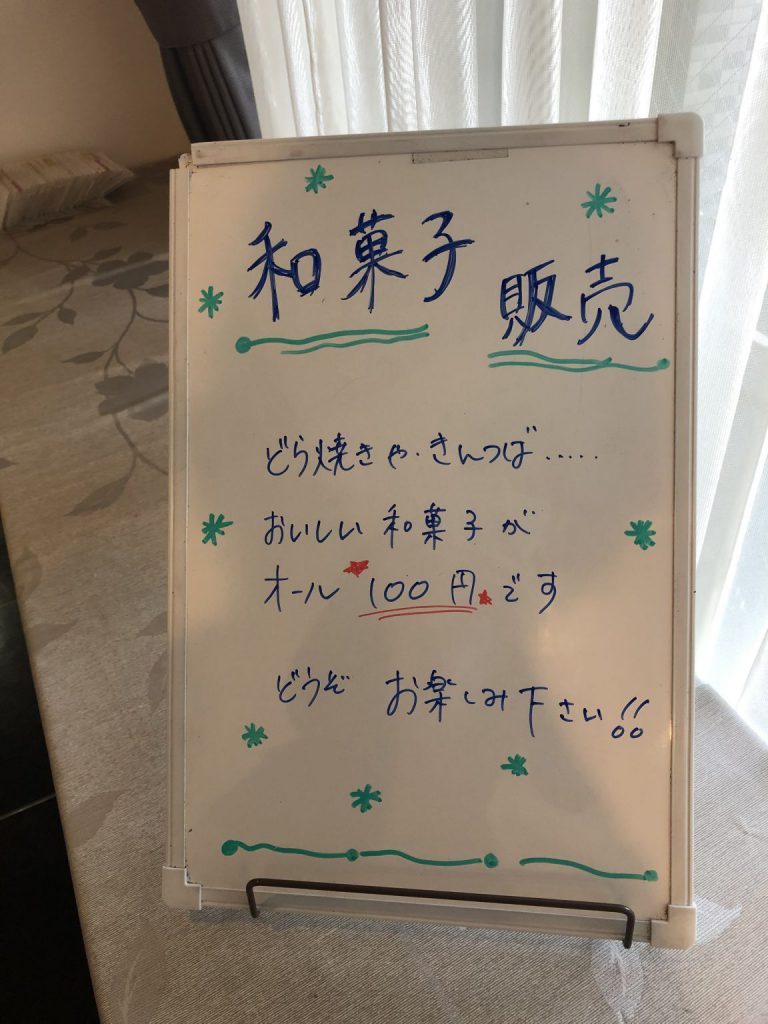 和菓子
販売
どら焼きや・きんつば・・・・・
おいしい和菓子が
オール 100円です
どうぞ お楽しみ下さい!!